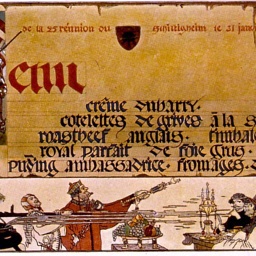 de la 25 réunion du le 21 janv
Menu
crême dubarry.
cotelettes de grives à la s
roastbeef anglais. timbale
royal parfait de foie gras.
puding ambassadrice. fromages.